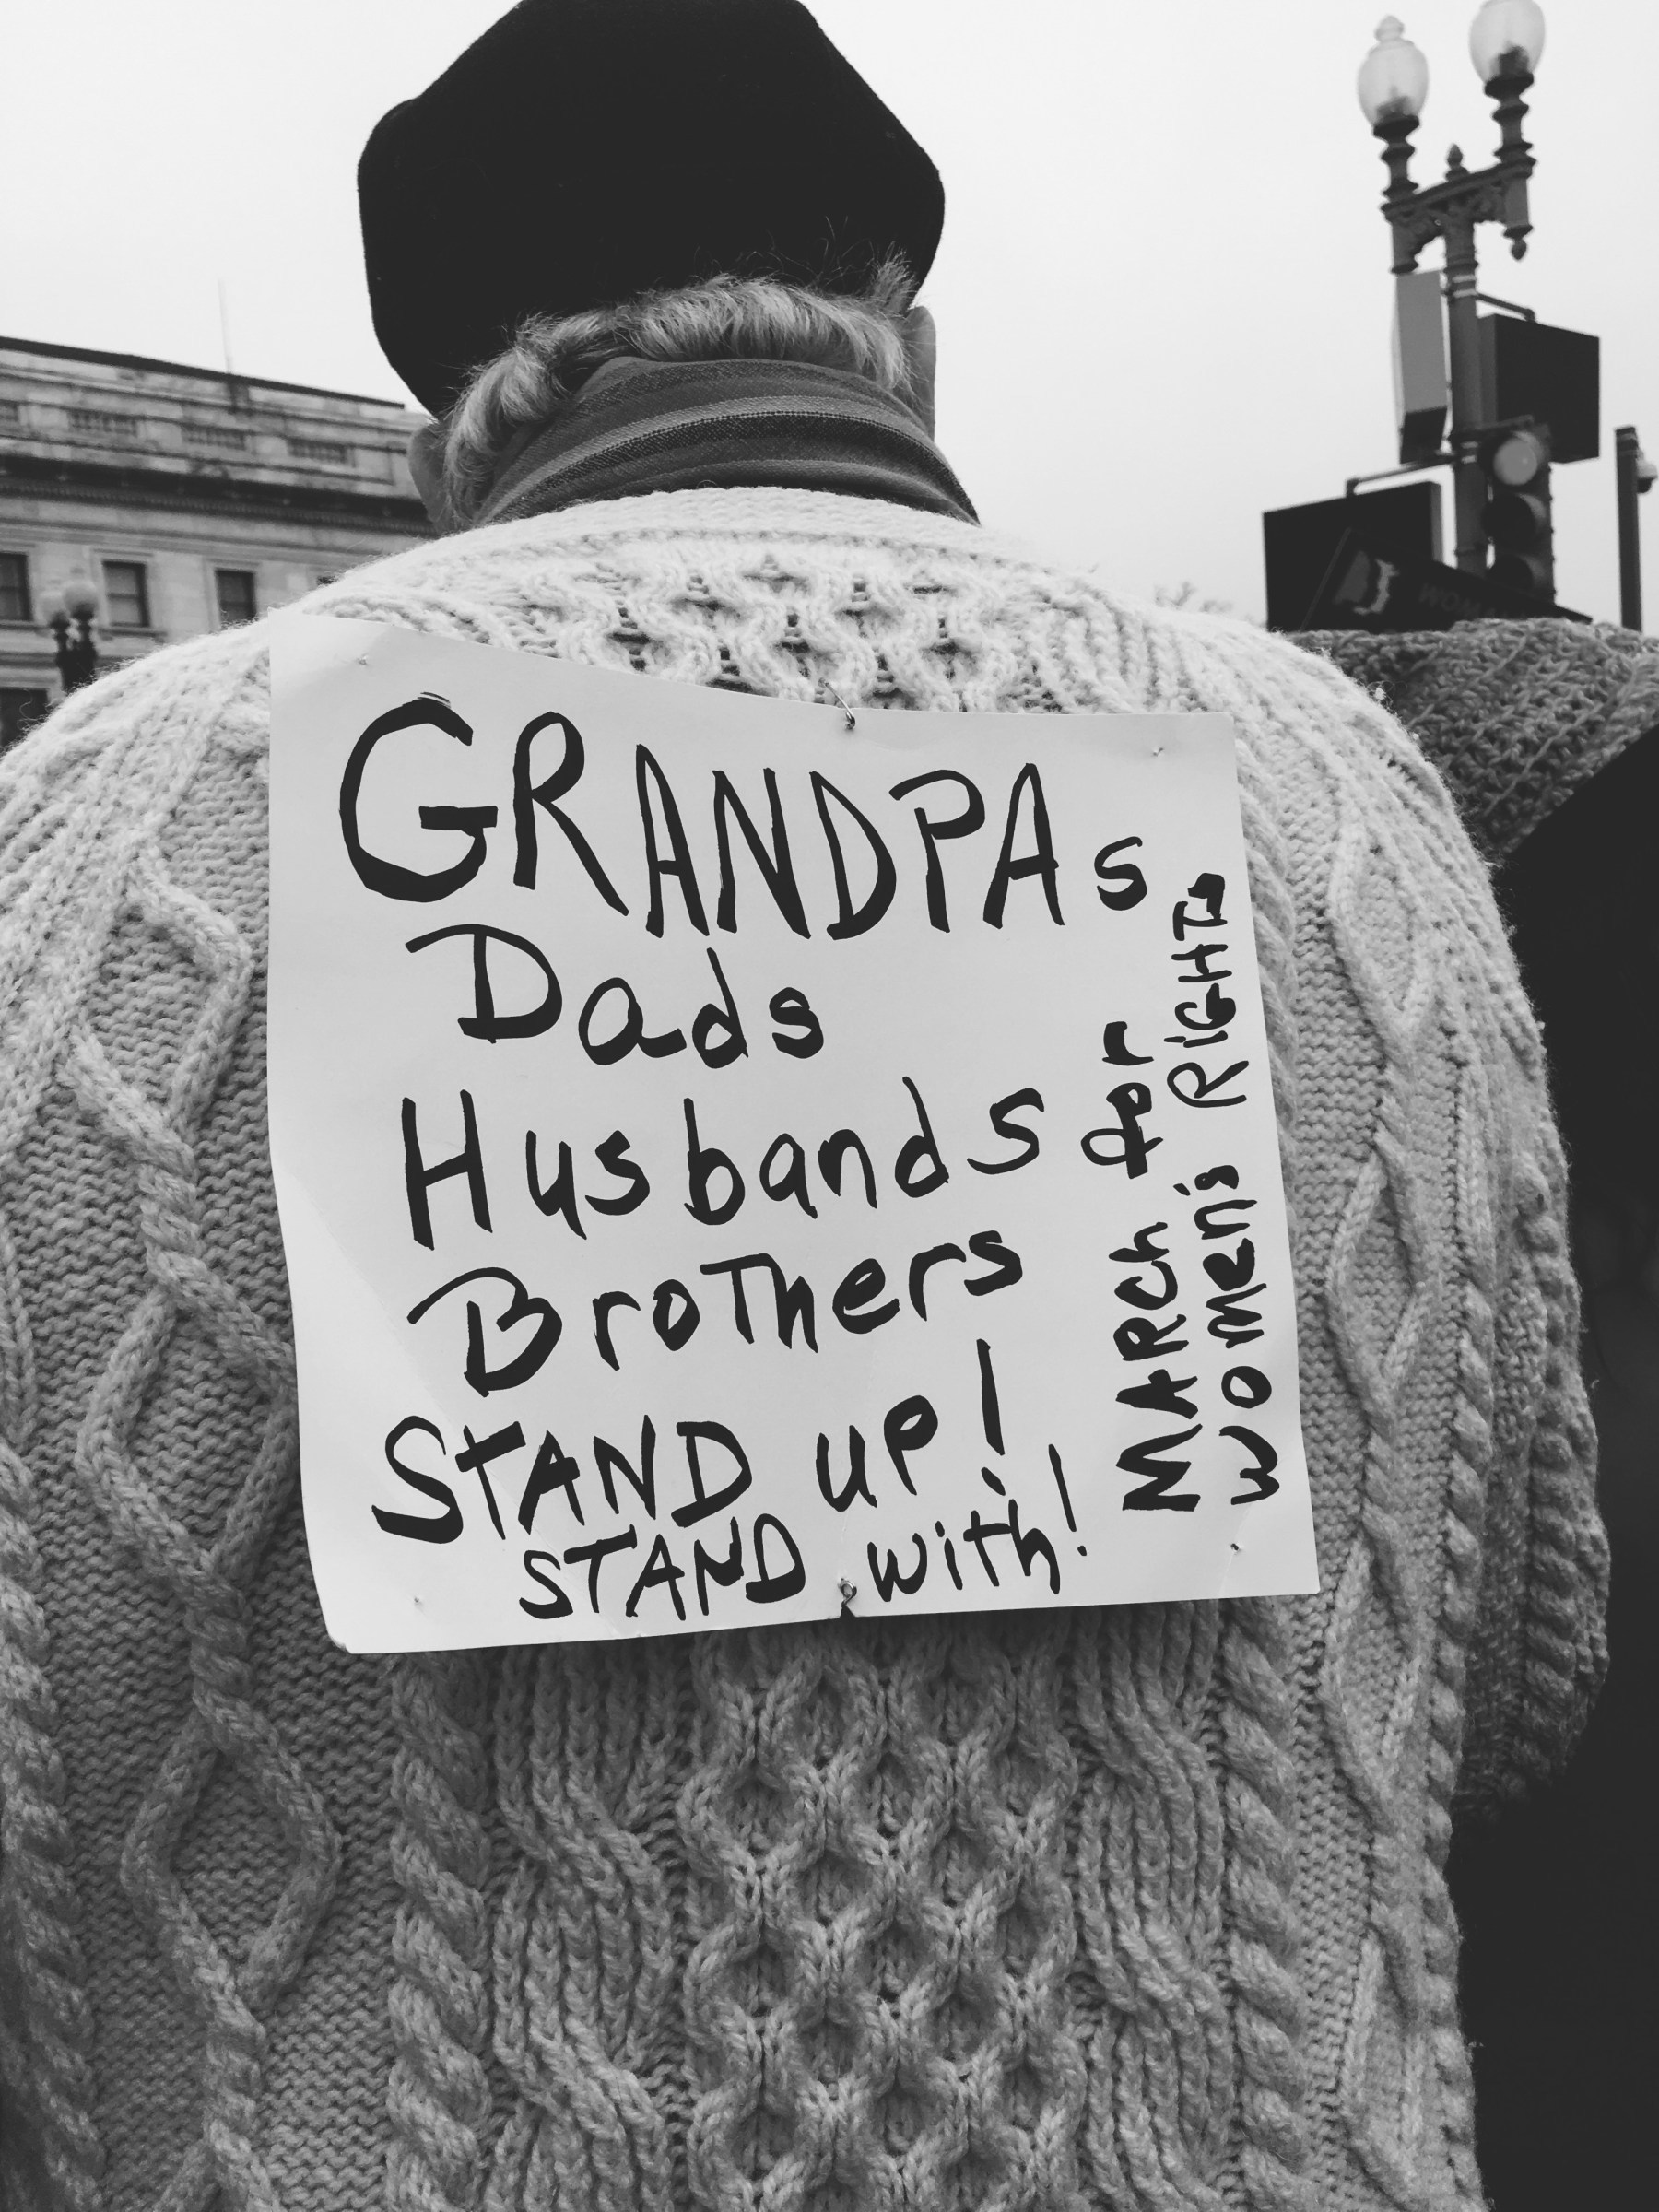 GRANDPAs
Dads
Husbands
BroThers
STAND up!
STAND with!
MARCh for
women's RiGHTs